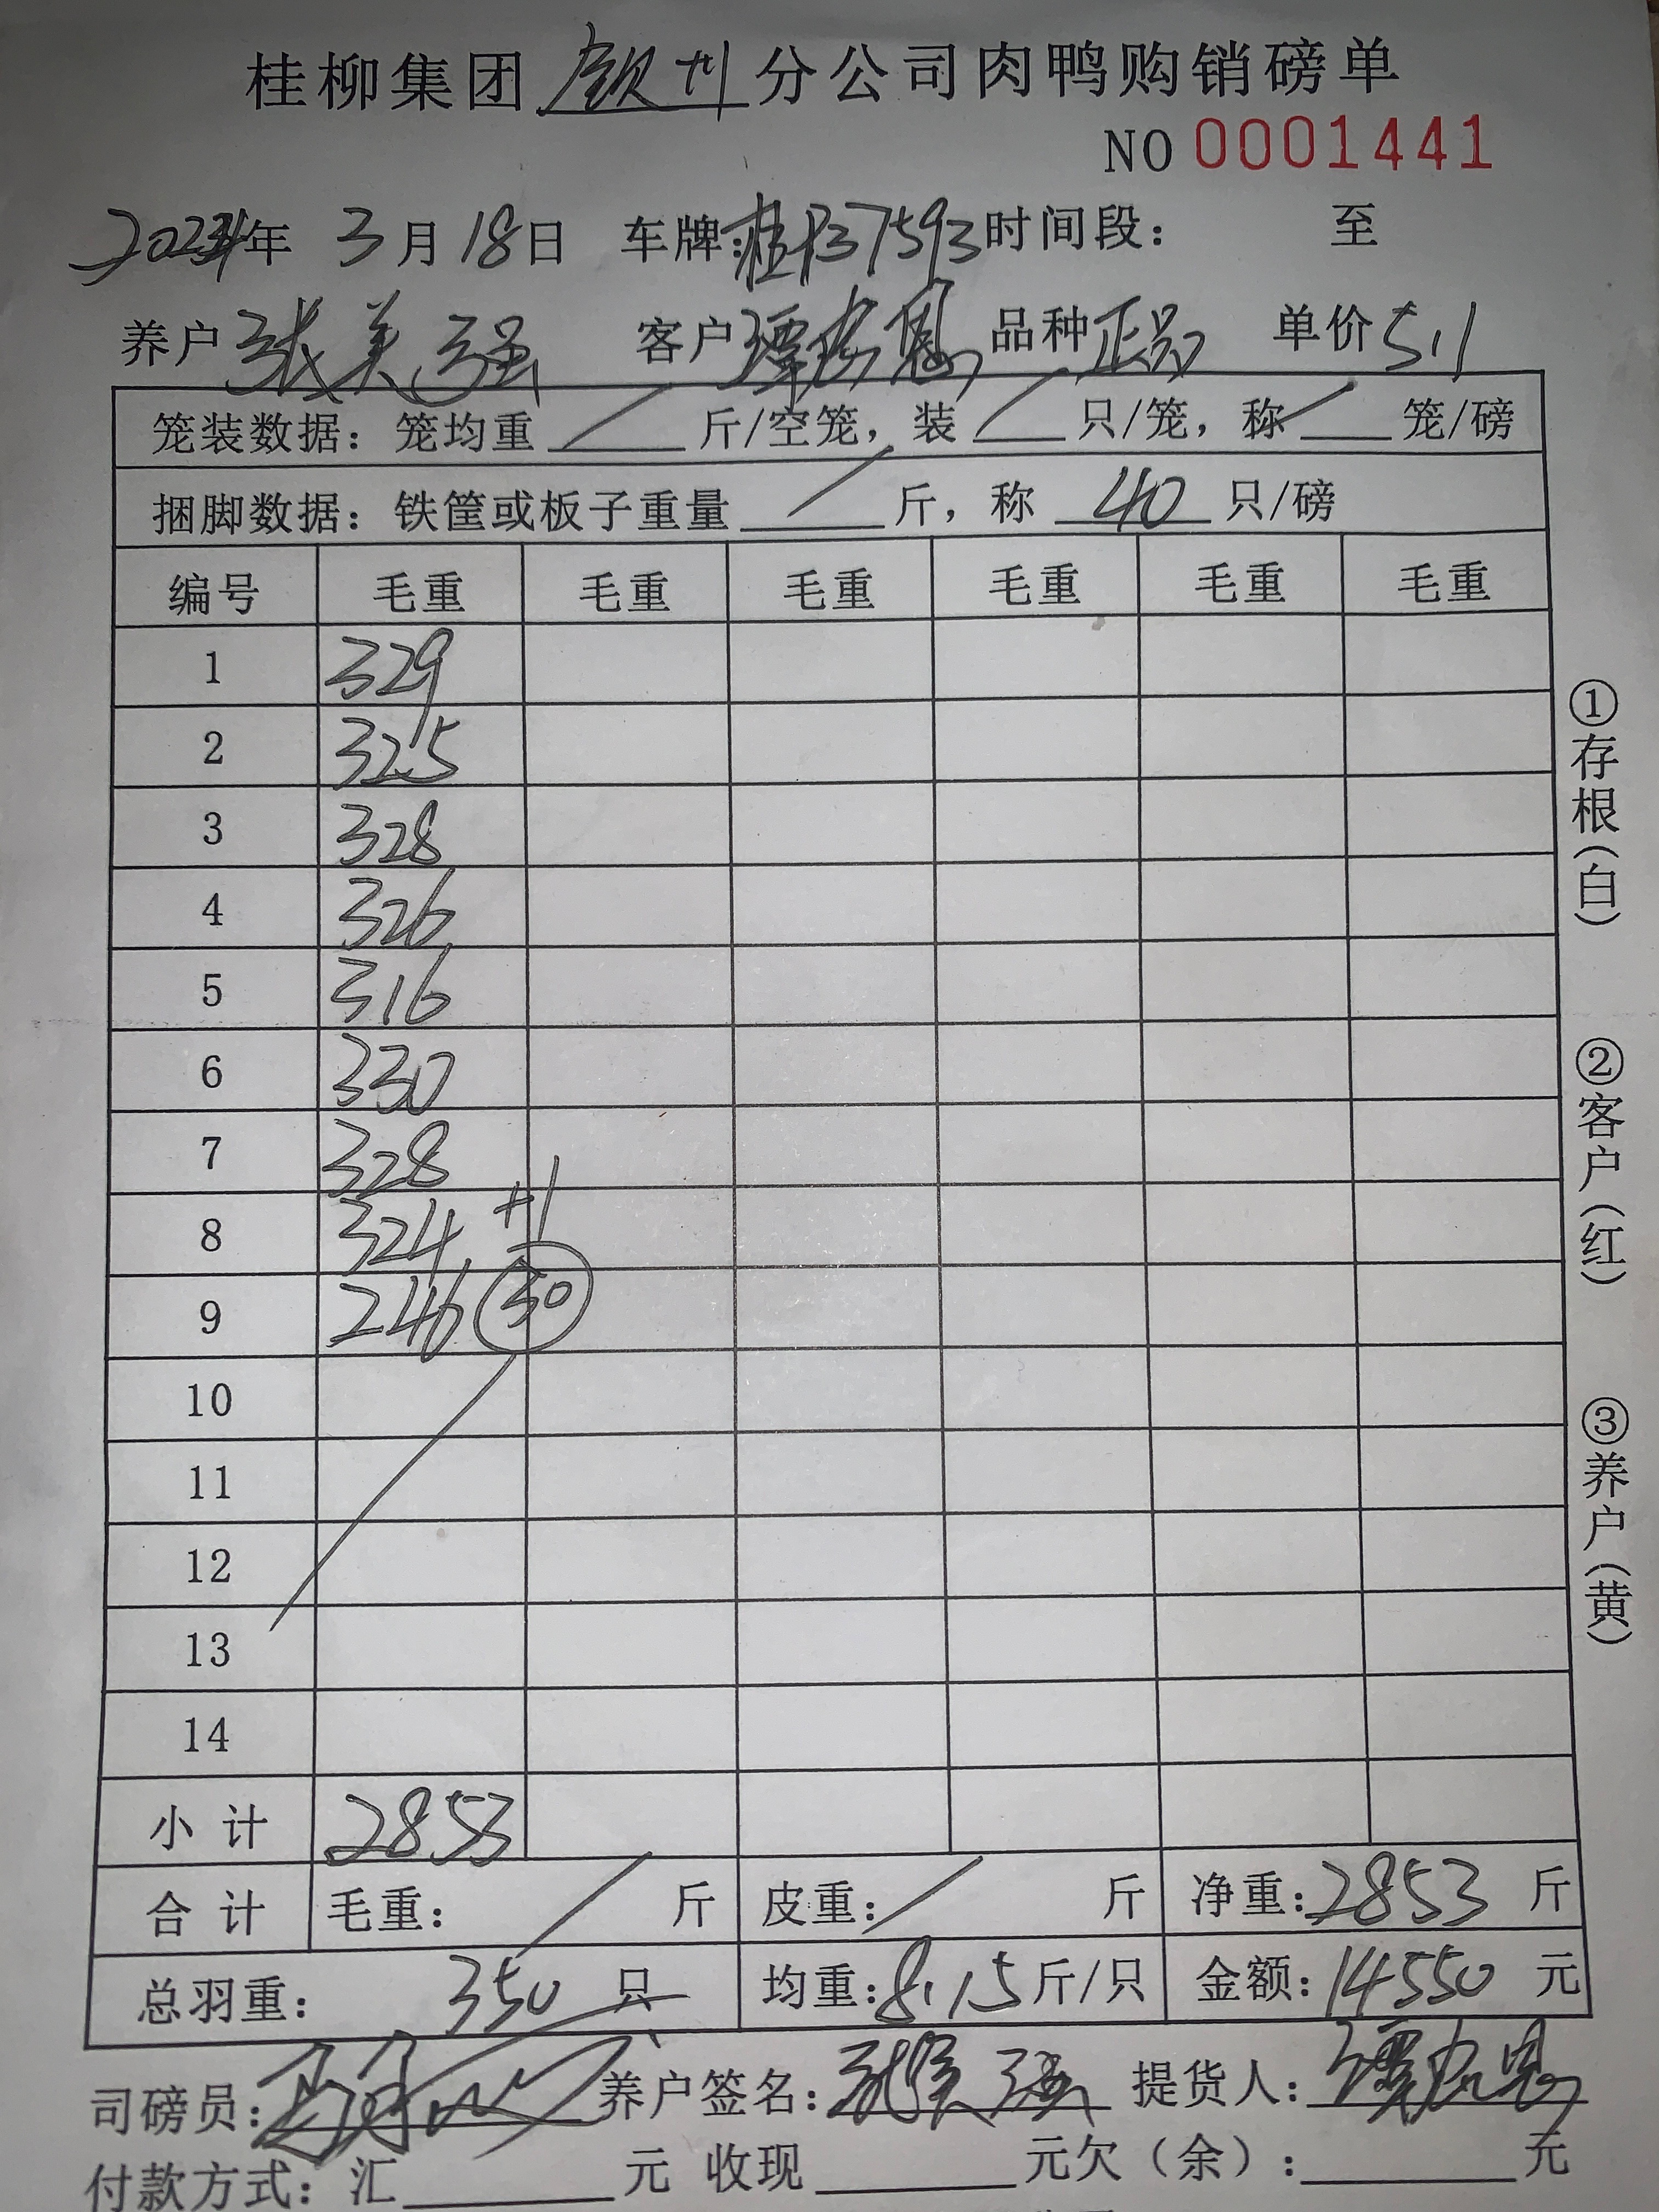 桂柳集团 钦州 分公司肉鸭购销磅单
NO 0001441
年 3月18日 车牌: 37593 时间段: 至
养户 张美强 客户 谭 恩 品种 正品 单价 5.1
笼装数据: 笼均重 斤/空笼, 装 只/笼, 称 笼/磅
捆脚数据: 铁筐或板子重量 斤, 称 40 只/磅
编号 毛重 毛重 毛重 毛重 毛重 毛重
1 329
2 325
3 328
4 326
5 316
6 330
7 328
8 324 +1
9 246 30
10
11
12
13
14
小计 2853
合计 毛重: 斤 皮重: 斤 净重: 2853 斤
总羽重: 350 只 均重: 8.15 斤/只 金额: 14550 元
司磅员: 养户签名: 张美强 提货人: 谭 恩
付款方式: 汇 元 收现 元 欠(余): 元
①存根(白)
②客户(红)
③养户(黄)